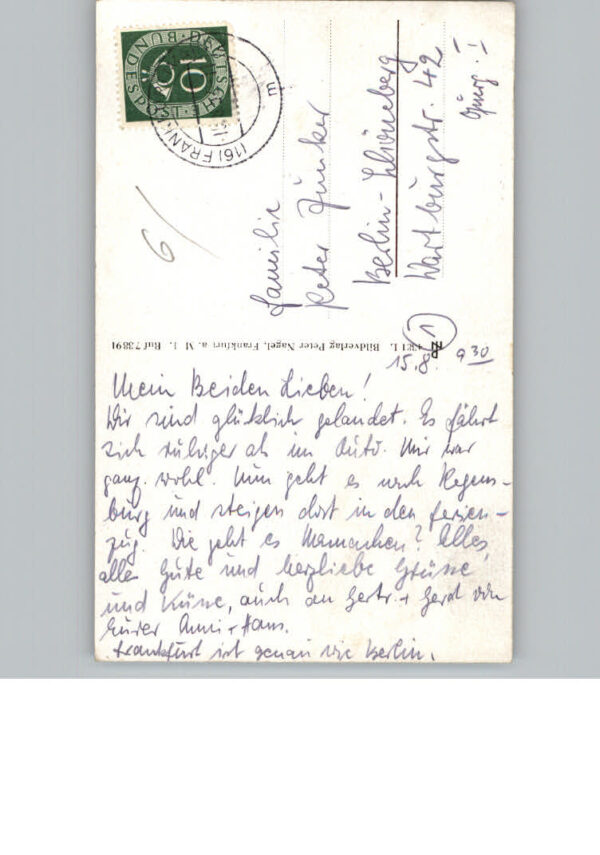 DEUTSCHE BUNDESPOST
10
(16) FRANK
m
6/
Familie
Peter Junker
Berlin-Schöneberg
Wartburgstr. 42
4321 L Bildverlag Peter Nagel, Frankfurt a. M 1. Ruf 73891
1
15.8. 9 30
Mein Beiden Lieben!
Wir sind glücklich gelandet. Es fährt
sich ruhiger als im Auto. Mir war
ganz wohl. Nun geht es nach Regens-
burg und steigen dort in den Ferien-
zug. Wie geht es Mamachen? Alles,
alles Gute und herzliche Grüsse
und Küsse, auch an Gertr. + Gerd von
Eurer Anni + Hans.
Frankfurt ist genau wie Berlin.